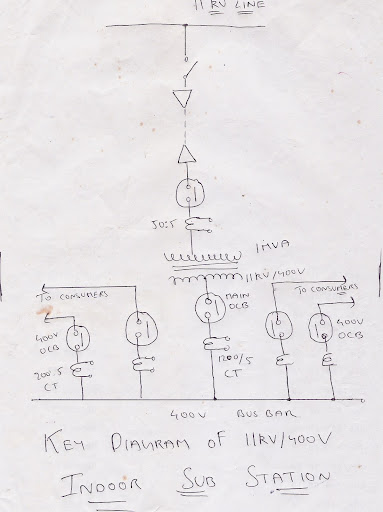 11 KV LINE
50:5
1MVA
11KV/400V
TO CONSUMERS
TO CONSUMERS
MAIN
OCB
400V
OCB
400V
OCB
200:5
CT
1200/5
CT
400V BUS BAR
KEY DIAGRAM OF 11KV/400V
INDOOR SUB STATION